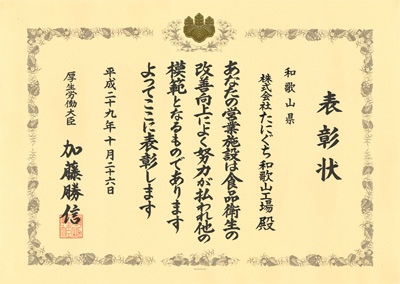 表彰状
和歌山県
株式会社たにぐち和歌山工場 殿
あなたの営業施設は食品衛生の
改善向上によく努力が払われ他の
模範となるものであります
よってここに表彰します
平成二十九年十月二十六日
厚生労働大臣
加藤勝信